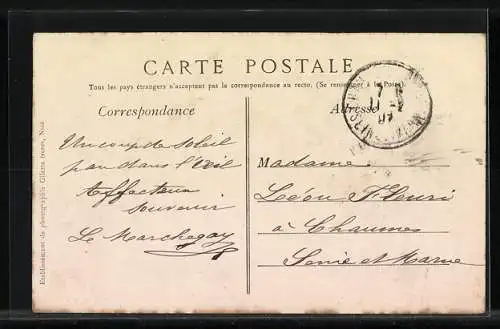 CARTE POSTALE
Tous les pays étrangers n'acceptent pas la correspondance au recto. (Se renseigner à la Poste)
Correspondance
Adresse
Un coup de soleil
pan dans l'œil
Affectueux
souvenir
Le Marchegay
Madame
Léon Fleuri
à Chaumes
Seine et Marne
17
Etablissement de photographie Gilletta frères, Nice